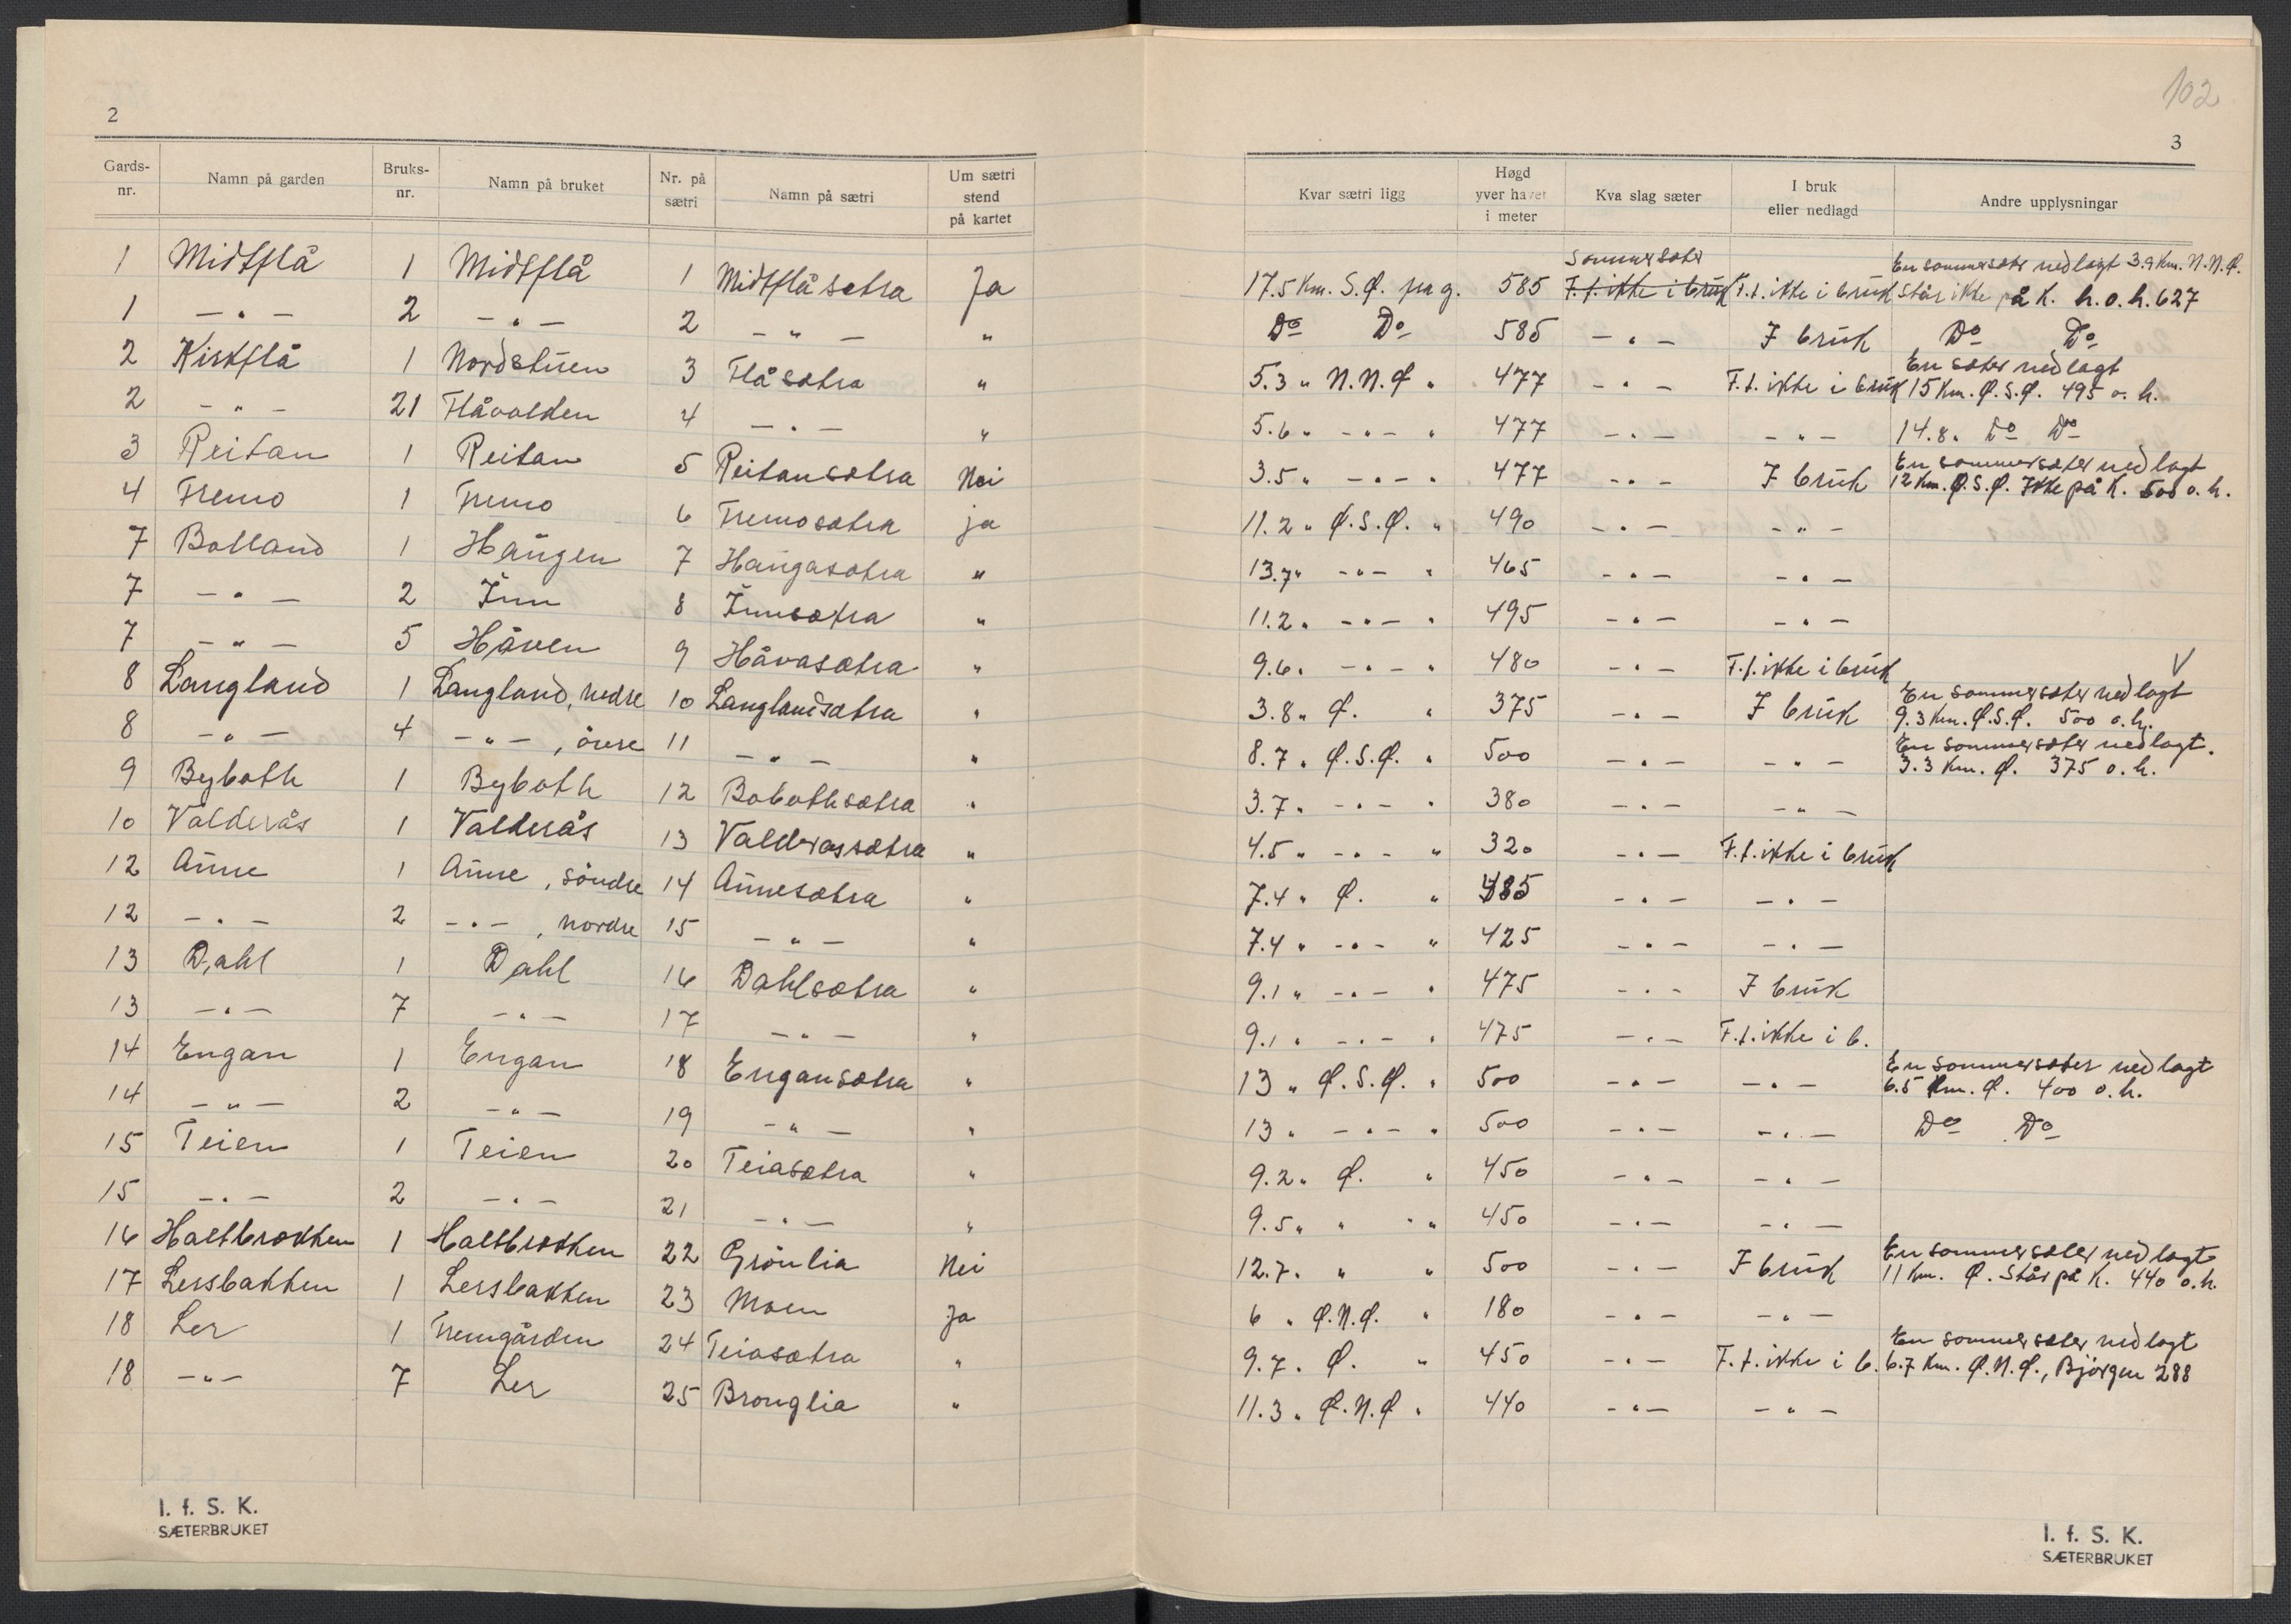 102
2
3
Gards-nr. Namn på garden Bruks-nr. Namn på bruket Nr. på sætri Namn på sætri Um sætri stend på kartet Kvar sætri ligg Høgd yver havet i meter Kva slag sæter I bruk eller nedlagd Andre upplysningar
1 Midtflå 1 Midtflå 1 Midtflåsetra Ja 17.5 Km. S.Ø. fra g. 585 Sommersæter F.t. ikke i bruk F.t. ikke i bruk En sommersæter nedlagt 3.9 Km. N.N.Ø. Står ikke på K. h.o.h. 627
1 -„- 2 -„- 2 -„- „ Do Do 585 -„- I bruk Do Do
2 Kirkflå 1 Nordstuen 3 Flåsætra „ 5.3 „ N.N.Ø „ 477 -„- F.t. ikke i bruk En sæter nedlagt 15 Km. Ø.S.Ø. 495 o. h.
2 -„- 21 Flåvolden 4 -„- „ 5.6 „ -„- „ 477 -„- -„- 14.8 „ Do Do
3 Reitan 1 Reitan 5 Reitansætra Nei 3.5 „ -„- „ 477 -„- I bruk En sommersæter nedlagt 12 Km. Ø.S.Ø. Ikke på K. 500 o. h.
4 Fremo 1 Fremo 6 Fremosætra ja 11.2 „ Ø.S.Ø. „ 490 -„- -„-
7 Bolland 1 Haugen 7 Haugasætra „ 13.7 „ -„- „ 465 -„- -„-
7 -„- 2 Inn 8 Innsætra „ 11.2 „ -„- „ 495 -„- -„-
7 -„- 5 Håven 9 Håvasætra „ 9.6 „ -„- „ 480 -„- F.t. ikke i bruk V
8 Langland 1 Langland, nedre 10 Langlandsætra „ 3.8 „ Ø. „ 375 -„- I bruk En sommersæter nedlagt 9.3 Km. Ø.S.Ø. 500 o.h.
8 -„- 4 -„- , övre 11 -„- „ 8.7 „ Ø.S.Ø. „ 500 -„- -„- En sommersæter nedlagt. 3.3 Km. Ø. 375 o. h.
9 Byboth 1 Byboth 12 Bobothsætra „ 3.7 „ -„- „ 380 -„- -„-
10 Valderås 1 Valderås 13 Valderassætra „ 4.5 „ -„- „ 320 -„- F.t. ikke i bruk
12 Aune 1 Aune, söndre 14 Aunesætra „ 7.4 „ Ø. „ 485 -„- -„-
12 -„- 2 -„- , nordre 15 -„- „ 7.4 „ -„- „ 425 -„- -„-
13 Dahl 1 Dahl 16 Dahlsætra „ 9.1 „ -„- „ 475 -„- I bruk
13 -„- 7 -„- 17 -„- „ 9.1 „ -„- „ 475 -„- F.t. ikke i b.
14 Engan 1 Engan 18 Engansætra „ 13 „ Ø.S.Ø. „ 500 -„- -„- En sommersæter nedlagt 6.5 Km. Ø. 400 o. h.
14 -„- 2 -„- 19 -„- „ 13 „ -„- „ 500 -„- -„- Do Do
15 Teien 1 Teien 20 Teiasætra „ 9.2 „ Ø. „ 450 -„- -„-
15 -„- 2 -„- 21 -„- „ 9.5 „ „ „ 450 -„- -„-
16 Haltbrækken 1 Haltbrækken 22 Grönlia Nei 12.7 „ „ „ 500 -„- I bruk En sommersæter nedlagt 11 Km. Ø. Står på K. 440 o. h.
17 Lersbakken 1 Lersbakken 23 Moen Ja 6 „ Ø.N.Ø. „ 180 -„- -„-
18 Ler 1 Fremgården 24 Teiasætra „ 9.7 „ Ø. „ 450 -„- F.t. ikke i b. En sommersæter nedlagt 6.7 Km. Ø.N.Ø., Björgen 288
18 -„- 7 Ler 25 Bronglia „ 11.3 „ Ø.N.Ø „ 440 -„- -„-
I. f. S. K.
SÆTERBRUKET
I. f. S. K.
SÆTERBRUKET